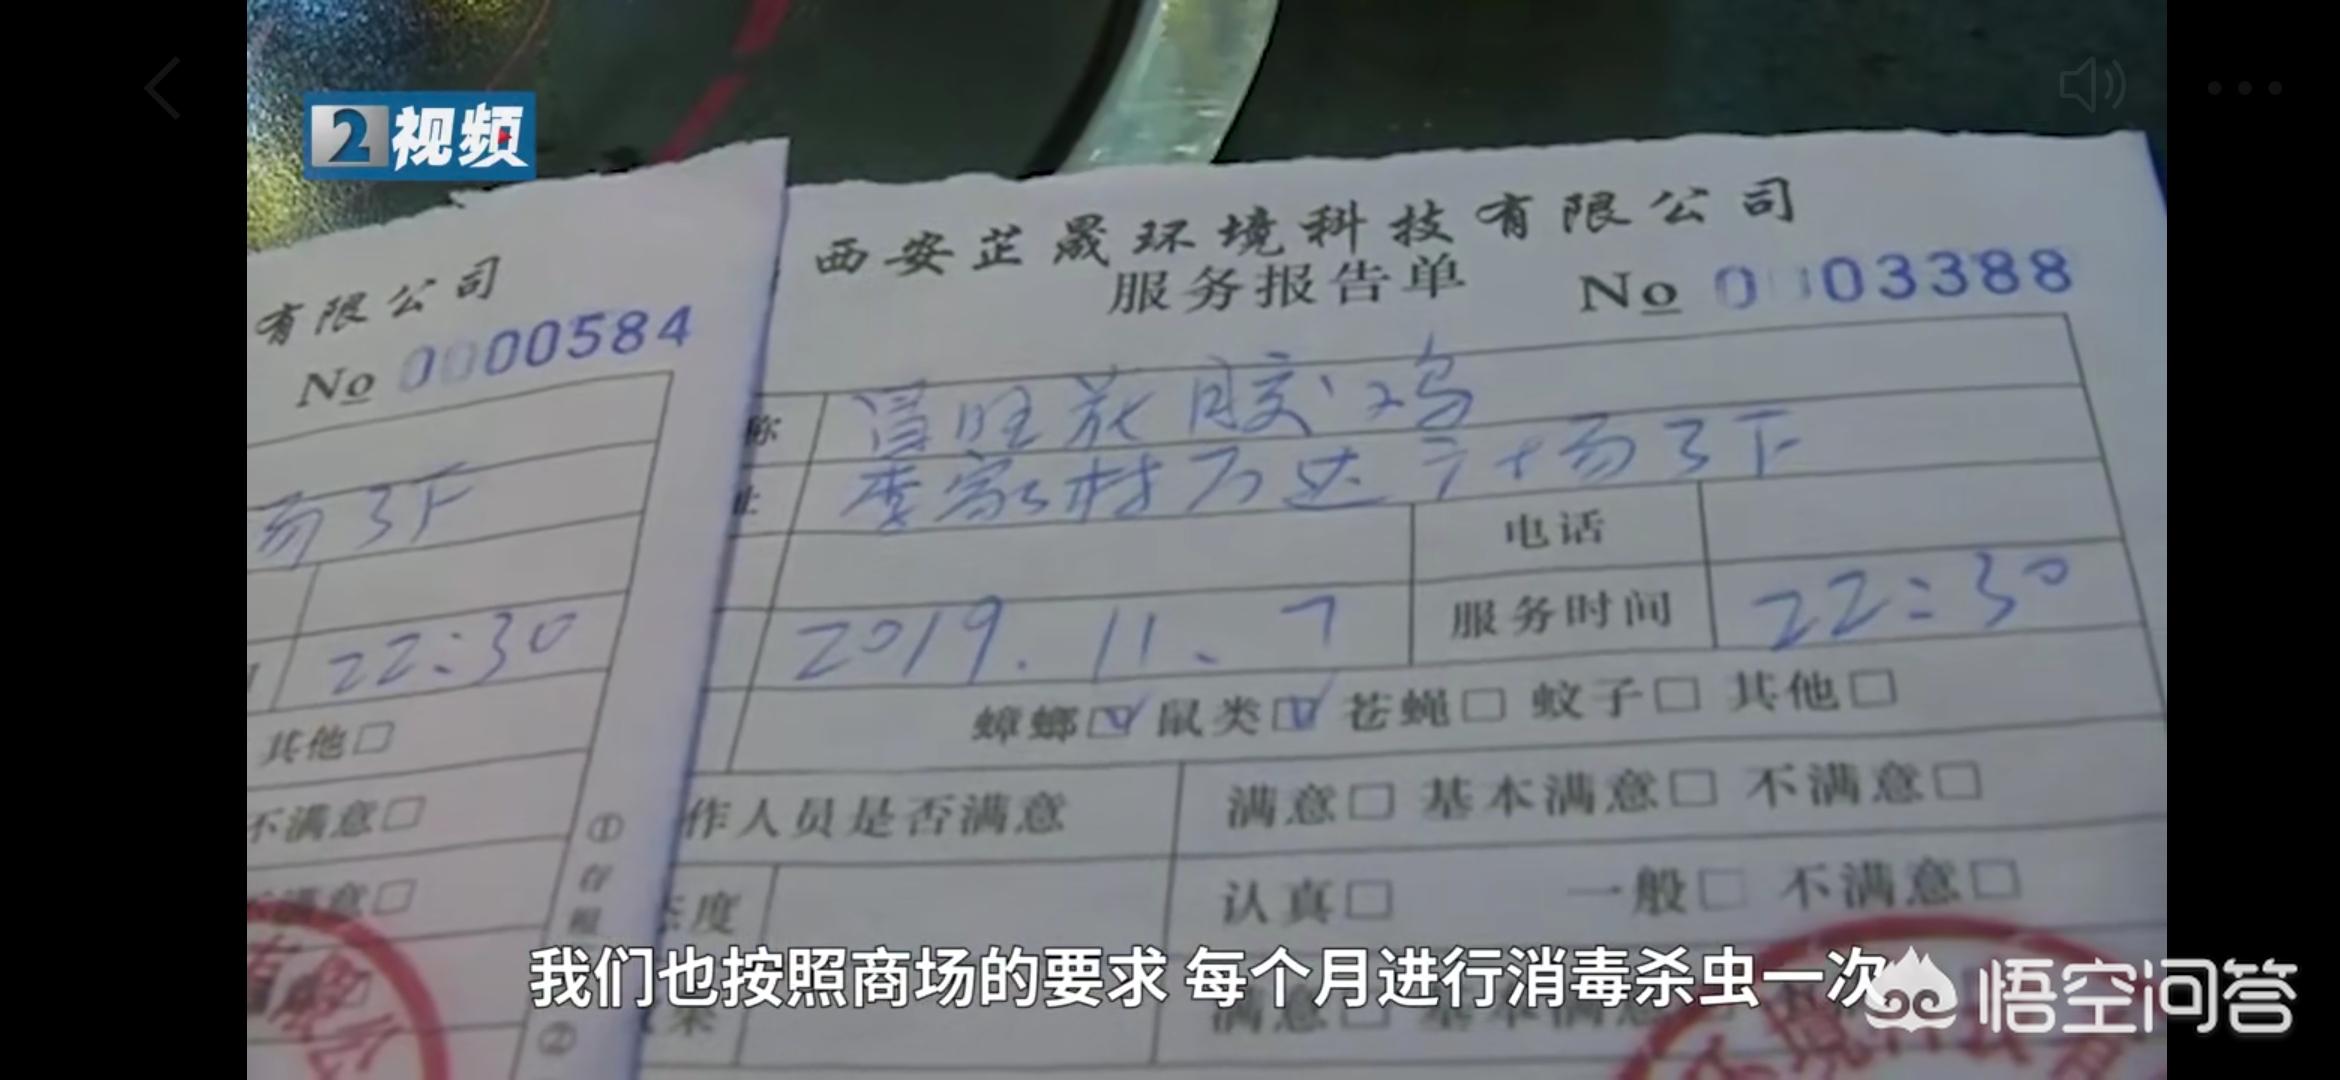 2视频
有限公司
No 0000584
场3下
22:30
其他□
不满意□
不满意□
①
存
根
②
西安芷晟环境科技有限公司
服务报告单 No 0003388
称 花胶鸡
址 李家村万达广场3下
电话
2019.11.7 服务时间 22:30
蟑螂☑ 鼠类☑ 苍蝇□ 蚊子□ 其他□
作人员是否满意 满意□ 基本满意□ 不满意□
态度 认真□ 一般□ 不满意□
我们也按照商场的要求 每个月进行消毒杀虫一次
悟空问答